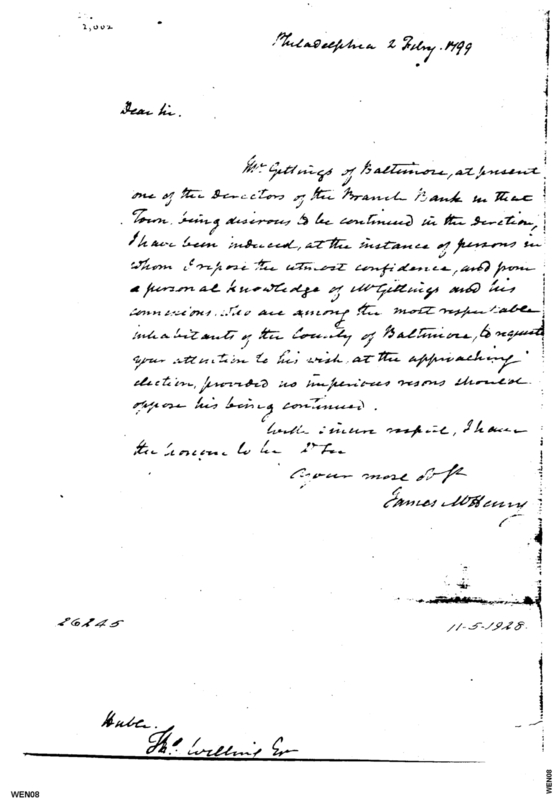 2,002
Philadelphia 2 Feby. 1799
Dear Sir.
Mr Gittings of Baltimore, at present
one of the Directors of the Branch Bank in that
Town, being disirous to be continued in the direction,
I have been induced, at the instance of persons in
whom I repose the utmost confidence, and from
a personal knowledge of Mr Gittings and his
connexions who are among the most respectable
inhabitants of the County of Baltimore, to request
your attention to his wish at the approaching
election, provided no imperious resons should
oppose his being continued.
With sincere respect, I have
the honour to be Dr Sir
your most obt
James McHenry
26245
11-5-1928.
Tho. Willing Esr
WEN08
WEN08